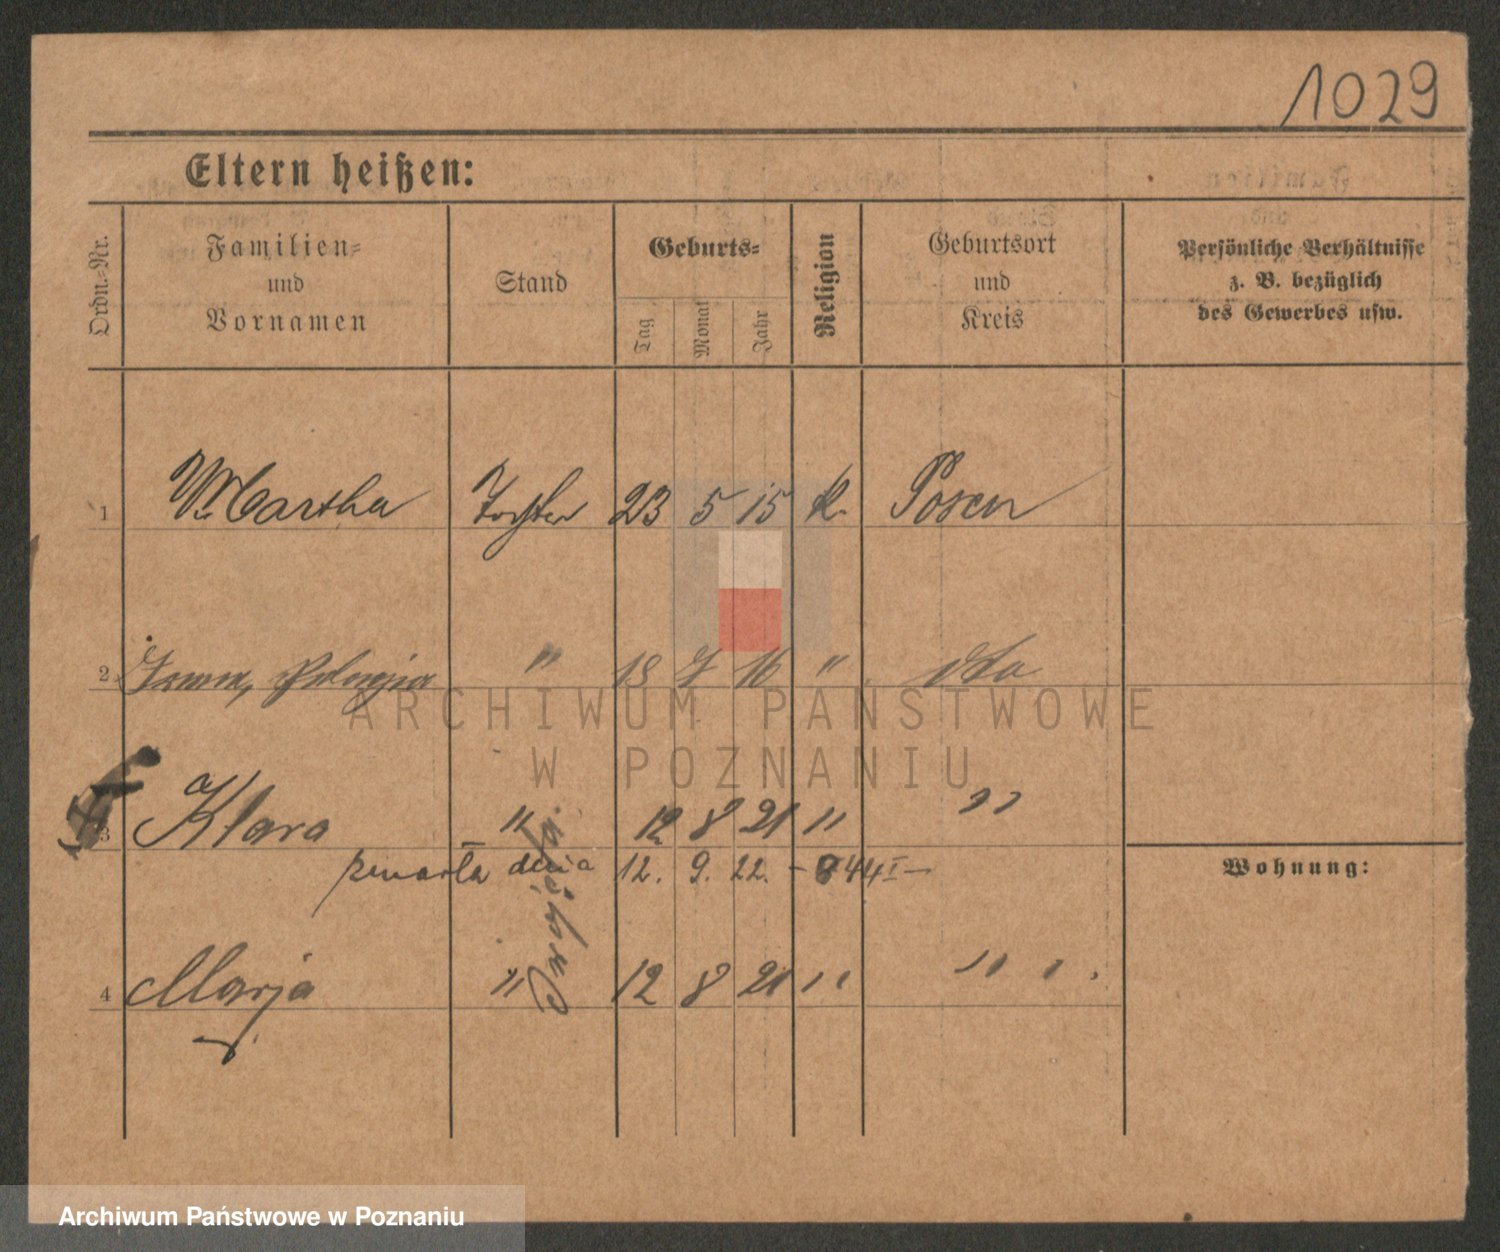 1029
Eltern heißen:
Ordn.-Nr.
Familien- und Vornamen
Stand
Geburts-
Tag
Monat
Jahr
Religion
Geburtsort und Kreis
Persönliche Verhältnisse z. B. bezüglich des Gewerbes usw.
1 Martha Tochter 23 5 15 k. Posen
2 Irena, Pelagja " 18 7 16 " dto
ARCHIWUM PAŃSTWOWE
W POZNANIU
3 Klara " 12 8 21 " "
zmarła dnia 12. 9. 22. - 844 I -
Wohnung:
4 Marja " 12 8 21 " "
Archiwum Państwowe w Poznaniu